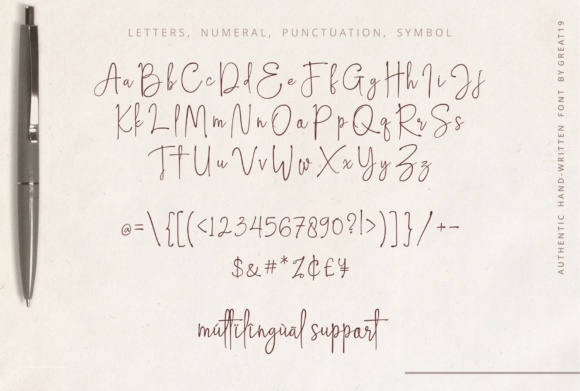 LETTERS, NUMERAL, PUNCTUATION, SYMBOL
Aa Bb Cc Dd Ee Ff Gg Hh Ii Jj
Kk Ll Mm Nn Oo Pp Qq Rr Ss
Tt Uu Vv Ww Xx Yy Zz
@=\{[(<1234567890?!>)]}/+-
$&#*%₵£¥
múltîlîngùàl support
AUTHENTIC HAND-WRITTEN FONT BY GREAT19